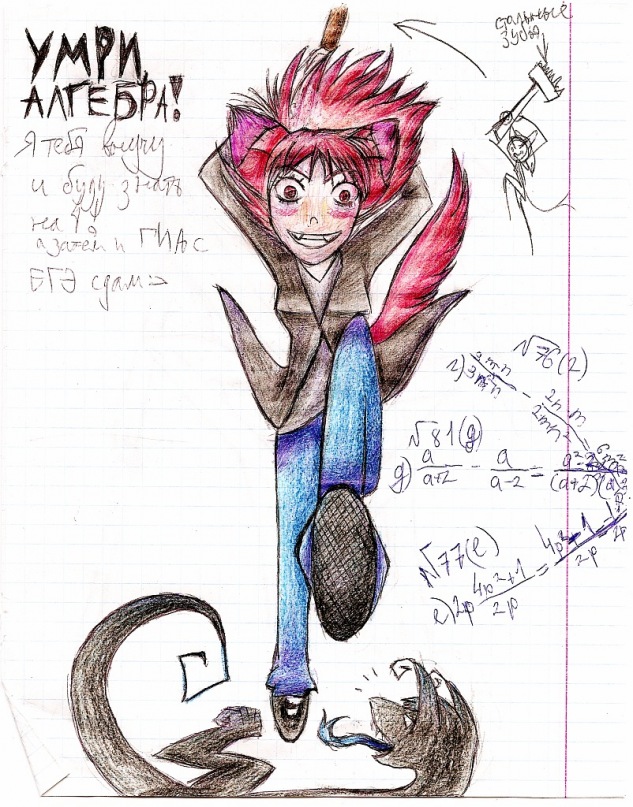 УМРИ,
АЛГЕБРА!
Я тебя выучу
и буду знать
на "4",
а затем и ГИА с
ЕГЭ сдам
стальные
зубья
№76(2)
2)
№81(д)
д) a/(a+2) - a/(a-2) =
№77(е)
е) 2p (4p²+1)/2p =